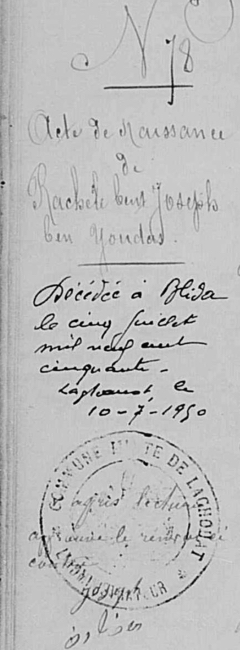 N 78
Acte de Naissance
de
Rachele bent Joseph
ben Youdas.
Décédée à Blida
le cinq Juillet
mil neuf cent
cinquante -
Laghouat, le
10-7-1950
COMMUNE MIXTE DE LAGHOUAT
après lecture
le